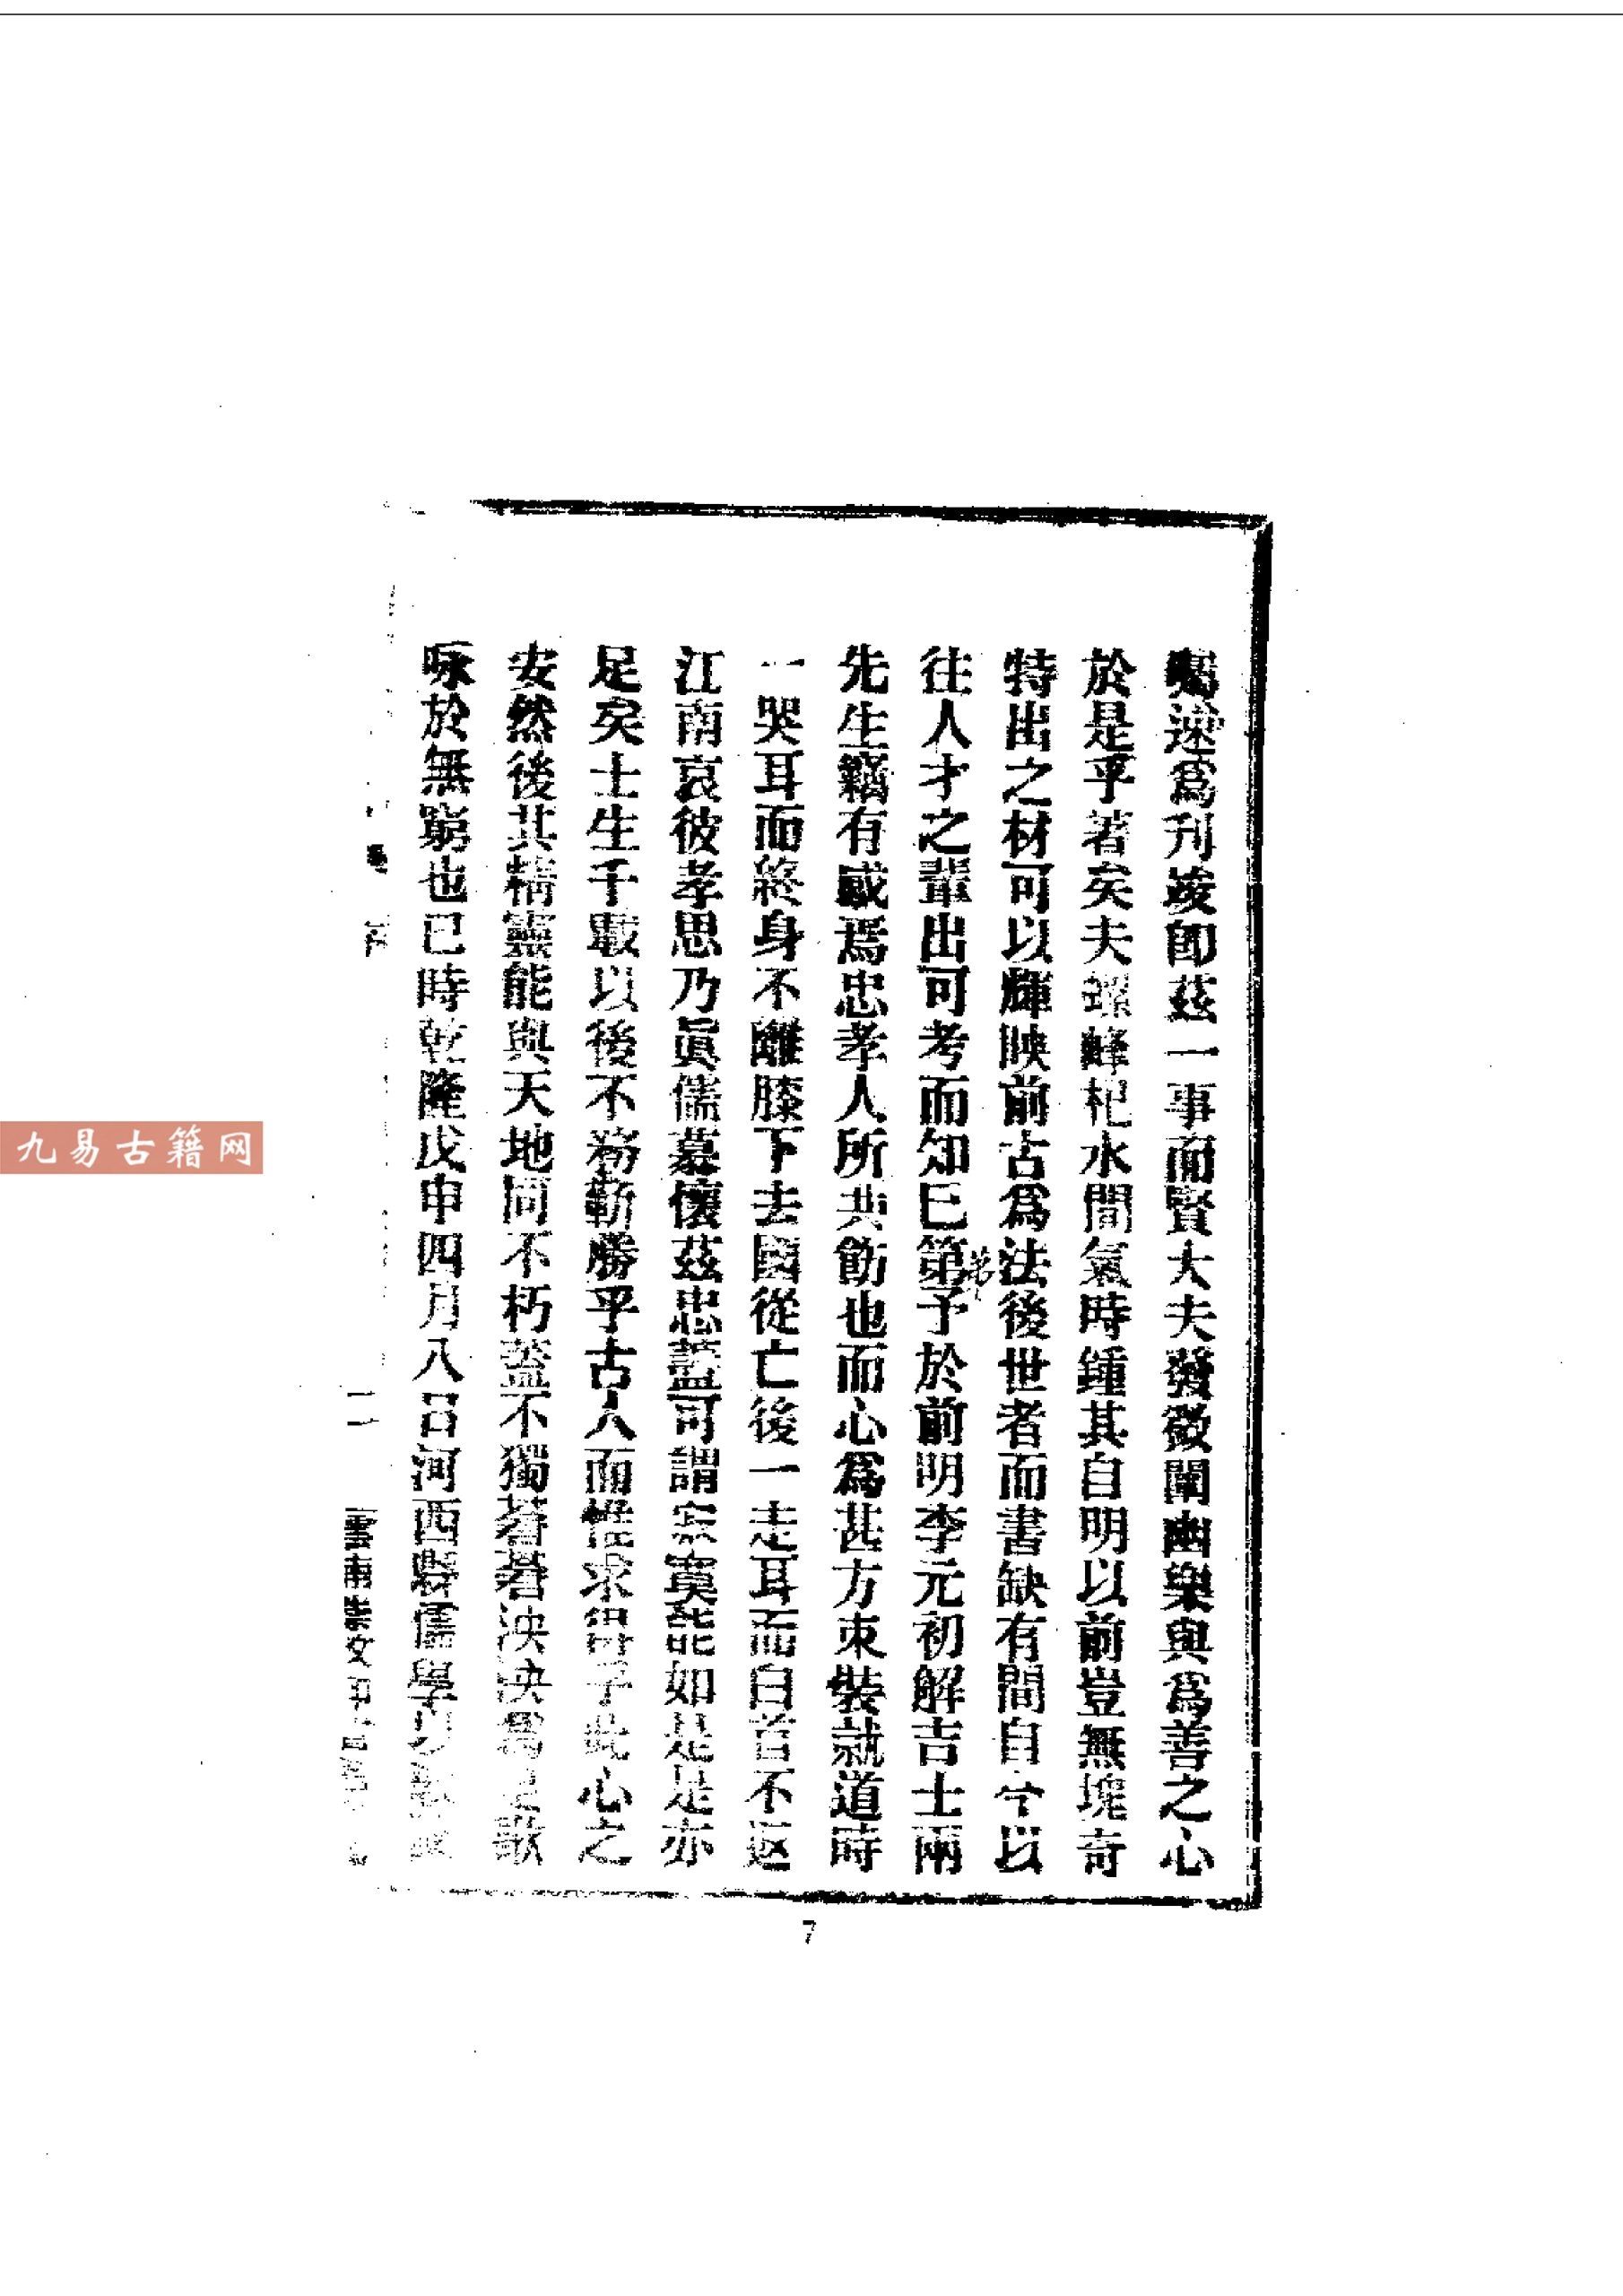 囑速爲刋竣卽茲一事而賢大夫發微闡幽樂與爲善之心
於是乎著矣夫螺峰杞水間氣時鍾其自明以前豈無塊奇
特出之材可以輝映前古爲法後世者而書缺有間自今以
往人才之輩出可考而知已第予於前明李元初解吉士兩
第
先生竊有感焉忠孝人所共飭也而心爲甚方束裝就道時
一哭耳而終身不離膝下去國從亡後一走耳而白首不返
江南哀彼孝思乃眞儒慕懷茲忠藎可謂寡能如是是亦
足矣士生千載以後不務蘄勝乎古人而惟求得乎此心之
安然後其精靈能與天地同不朽蓋不獨著著泱泱爲足歌
咏於無窮也已時乾隆戊申四月八日河西縣儒學
二
雲南叢文
7
九易古籍网